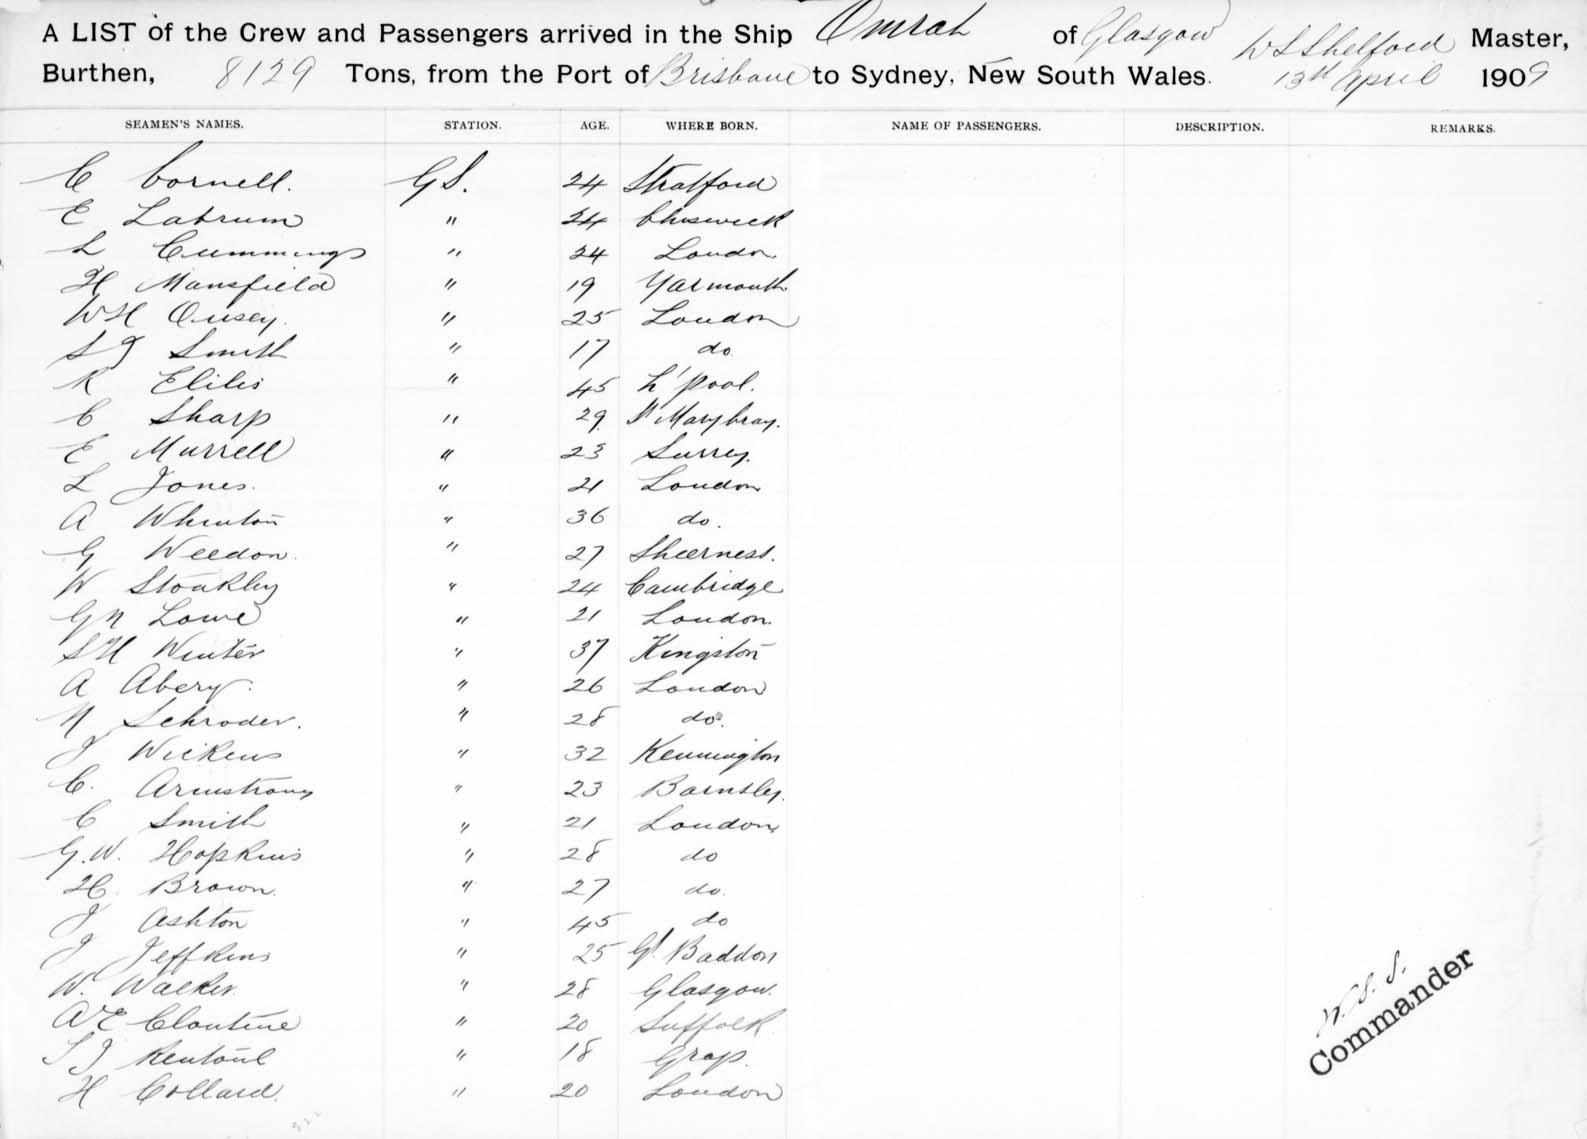 A LIST of the Crew and Passengers arrived in the Ship Omrah of Glasgow W S Shelford Master,
Burthen, 8129 Tons, from the Port of Brisbane to Sydney, New South Wales. 13th April 1909
SEAMEN'S NAMES. STATION. AGE. WHERE BORN. NAME OF PASSENGERS. DESCRIPTION. REMARKS.
C Cornell. G S. 24 Stratford
E Labrum " 24 Chiswick
L Cummings " 24 London
H Mansfield " 19 Yarmouth
W H Ousey. " 25 London
S J Smith " 17 do.
R " 45 L'pool.
C Sharp " 29 St
E Murrell " 23 Surrey.
L Jones. " 21 London
A " 36 do.
G Weedon. " 27 Sheerness.
W Stoakley " 24 Cambridge
G N Lowe " 21 London.
S H Winter " 37 Kingston
A Abery. " 26 London
N Schroder. " 28 do.
J Wickens " 32 Kennington
C. Armstrong " 23 Barnsley.
C Smith " 21 London
G. W. Hopkins " 28 do
H. Brown. " 27 do.
J Ashton " 45 do
J Jeffkins " 25 Gt Baddon
W. Walker. " 28 Glasgow.
A E " 20 Suffolk.
S J Rentoul " 18
H Collard. " 20 London
W. S. S.
Commander